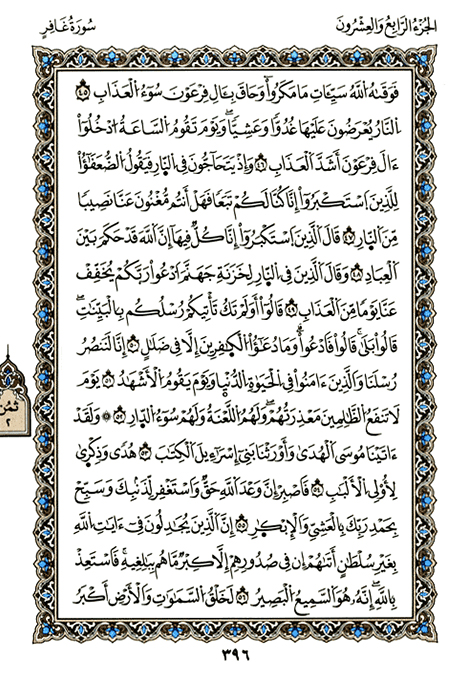 الجُزءُ الرَّابِعُ وَالعِشْرُونَ
سُورَةُ غَافِرٍ
فَوَقَىٰهُ اللَّهُ سَيِّـَٔاتِ مَا مَكَرُواْۖ وَحَاقَ بِـَٔالِ فِرْعَوْنَ سُوٓءُ الْعَذَابِ ٤٥
النَّارُ يُعْرَضُونَ عَلَيْهَا غُدُوًّا وَعَشِيًّاۖ وَيَوْمَ تَقُومُ السَّاعَةُ ادْخُلُوٓاْ
ءَالَ فِرْعَوْنَ أَشَدَّ الْعَذَابِ ٤٦ وَإِذْ يَتَحَآجُّونَ فِي النَّارِ فَيَقُولُ الضُّعَفَٰٓؤُاْ
لِلَّذِينَ اسْتَكْبَرُوٓاْ إِنَّا كُنَّا لَكُمْ تَبَعًا فَهَلْ أَنتُم مُّغْنُونَ عَنَّا نَصِيبًا
مِّنَ النَّارِ ٤٧ قَالَ الَّذِينَ اسْتَكْبَرُوٓاْ إِنَّا كُلٌّ فِيهَآ إِنَّ اللَّهَ قَدْ حَكَمَ بَيْنَ
الْعِبَادِ ٤٨ وَقَالَ الَّذِينَ فِي النَّارِ لِخَزَنَةِ جَهَنَّمَ ادْعُواْ رَبَّكُمْ يُخَفِّفْ
عَنَّا يَوْمًا مِّنَ الْعَذَابِ ٤٩ قَالُوٓاْ أَوَلَمْ تَكُ تَأْتِيكُمْ رُسُلُكُم بِالْبَيِّنَٰتِۖ
قَالُواْ بَلَىٰۚ قَالُواْ فَادْعُواْۗ وَمَا دُعَٰٓؤُاْ الْكَٰفِرِينَ إِلَّا فِي ضَلَٰلٍ ٥٠ إِنَّا لَنَنصُرُ
رُسُلَنَا وَالَّذِينَ ءَامَنُواْ فِي الْحَيَوٰةِ الدُّنْيَا وَيَوْمَ يَقُومُ الْأَشْهَٰدُ ٥١ يَوْمَ
لَا تَنفَعُ الظَّٰلِمِينَ مَعْذِرَتُهُمْۖ وَلَهُمُ اللَّعْنَةُ وَلَهُمْ سُوٓءُ النَّارِ ٥٢ وَلَقَدْ
ءَاتَيْنَا مُوسَى الْهُدَىٰ وَأَوْرَثْنَا بَنِيٓ إِسْرَٰٓءِيلَ الْكِتَٰبَ ٥٣ هُدًى وَذِكْرَىٰ
لِأُوْلِي الْأَلْبَٰبِ ٥٤ فَاصْبِرْ إِنَّ وَعْدَ اللَّهِ حَقٌّ وَاسْتَغْفِرْ لِذَنۢبِكَ وَسَبِّحْ
بِحَمْدِ رَبِّكَ بِالْعَشِيِّ وَالْإِبْكَٰرِ ٥٥ إِنَّ الَّذِينَ يُجَٰدِلُونَ فِيٓ ءَايَٰتِ اللَّهِ
بِغَيْرِ سُلْطَٰنٍ أَتَىٰهُمْ إِن فِي صُدُورِهِمْ إِلَّا كِبْرٌ مَّا هُم بِبَٰلِغِيهِۚ فَاسْتَعِذْ
بِاللَّهِۖ إِنَّهُ هُوَ السَّمِيعُ الْبَصِيرُ ٥٦ لَخَلْقُ السَّمَٰوَٰتِ وَالْأَرْضِ أَكْبَرُ
ثُمُن
٢
٣٩٦